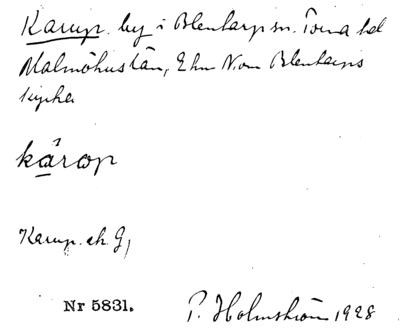 Karup. by i Blentarp sn. Torna hd
Malmöhus län, 2 km N om Blentarps
kyrka
kårop
Karup. ek. G,
Nr 5831. P. Holmström 1928